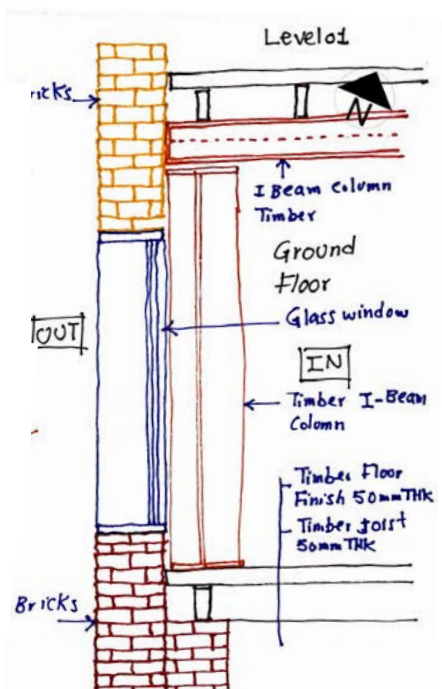 Level01
ricks
N
I Beam Column
Timber
Ground
Floor
Glass window
OUT
IN
Timber I-Beam
Column
Timber Floor
Finish 50mmTHK
Timber Joist
50mmTHK
Bricks